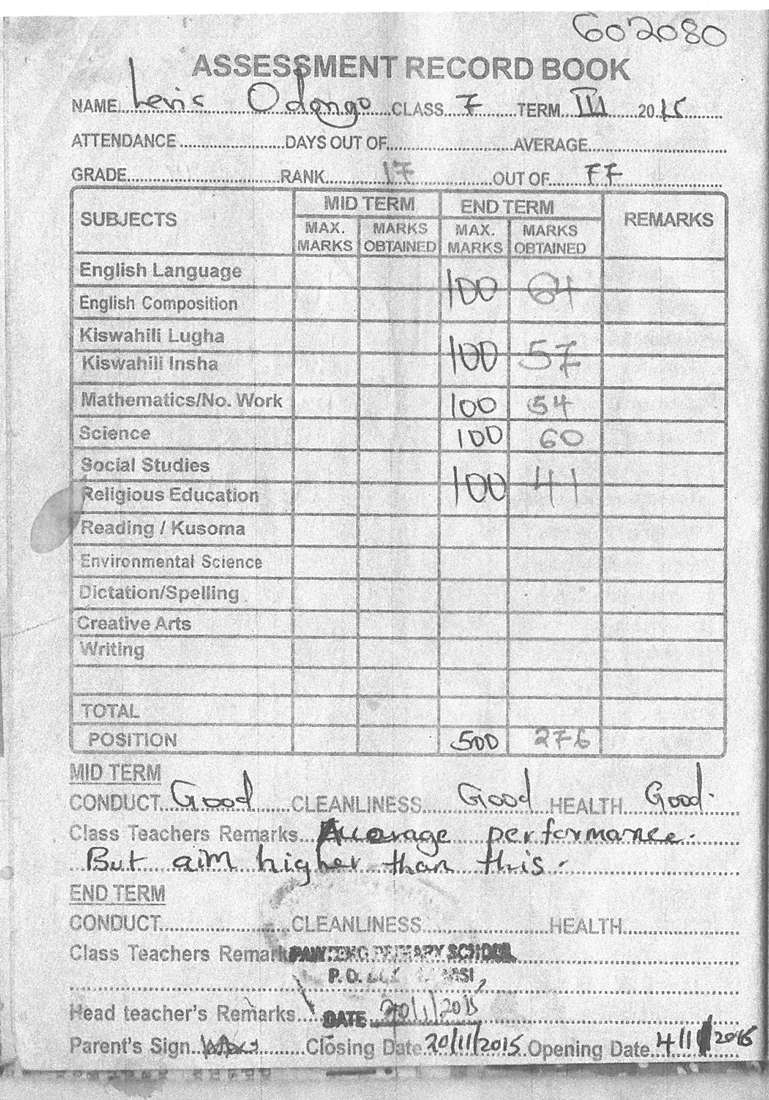 602080
ASSESSMENT RECORD BOOK
NAME Levis Odongo CLASS 7 TERM III 2015
ATTENDANCE DAYS OUT OF AVERAGE
GRADE RANK 17 OUT OF 77
SUBJECTS MID TERM END TERM REMARKS
MAX. MARKS MARKS OBTAINED MAX. MARKS MARKS OBTAINED
English Language
English Composition 100 64
Kiswahili Lugha
Kiswahili Insha 100 57
Mathematics/No. Work 100 54
Science 100 60
Social Studies
Religious Education 100 41
Reading / Kusoma
Environmental Science
Dictation/Spelling
Creative Arts
Writing
TOTAL
POSITION 500 276
MID TERM
CONDUCT Good CLEANLINESS Good HEALTH Good.
Class Teachers Remarks Average performance.
But aim higher than this.
END TERM
CONDUCT CLEANLINESS HEALTH
Class Teachers Remark PRIMARY SCHOOL
P.O.
Head teacher's Remarks DATE 20/11/2015
Parent's Sign Closing Date 20/11/2015 Opening Date 4/1/2016